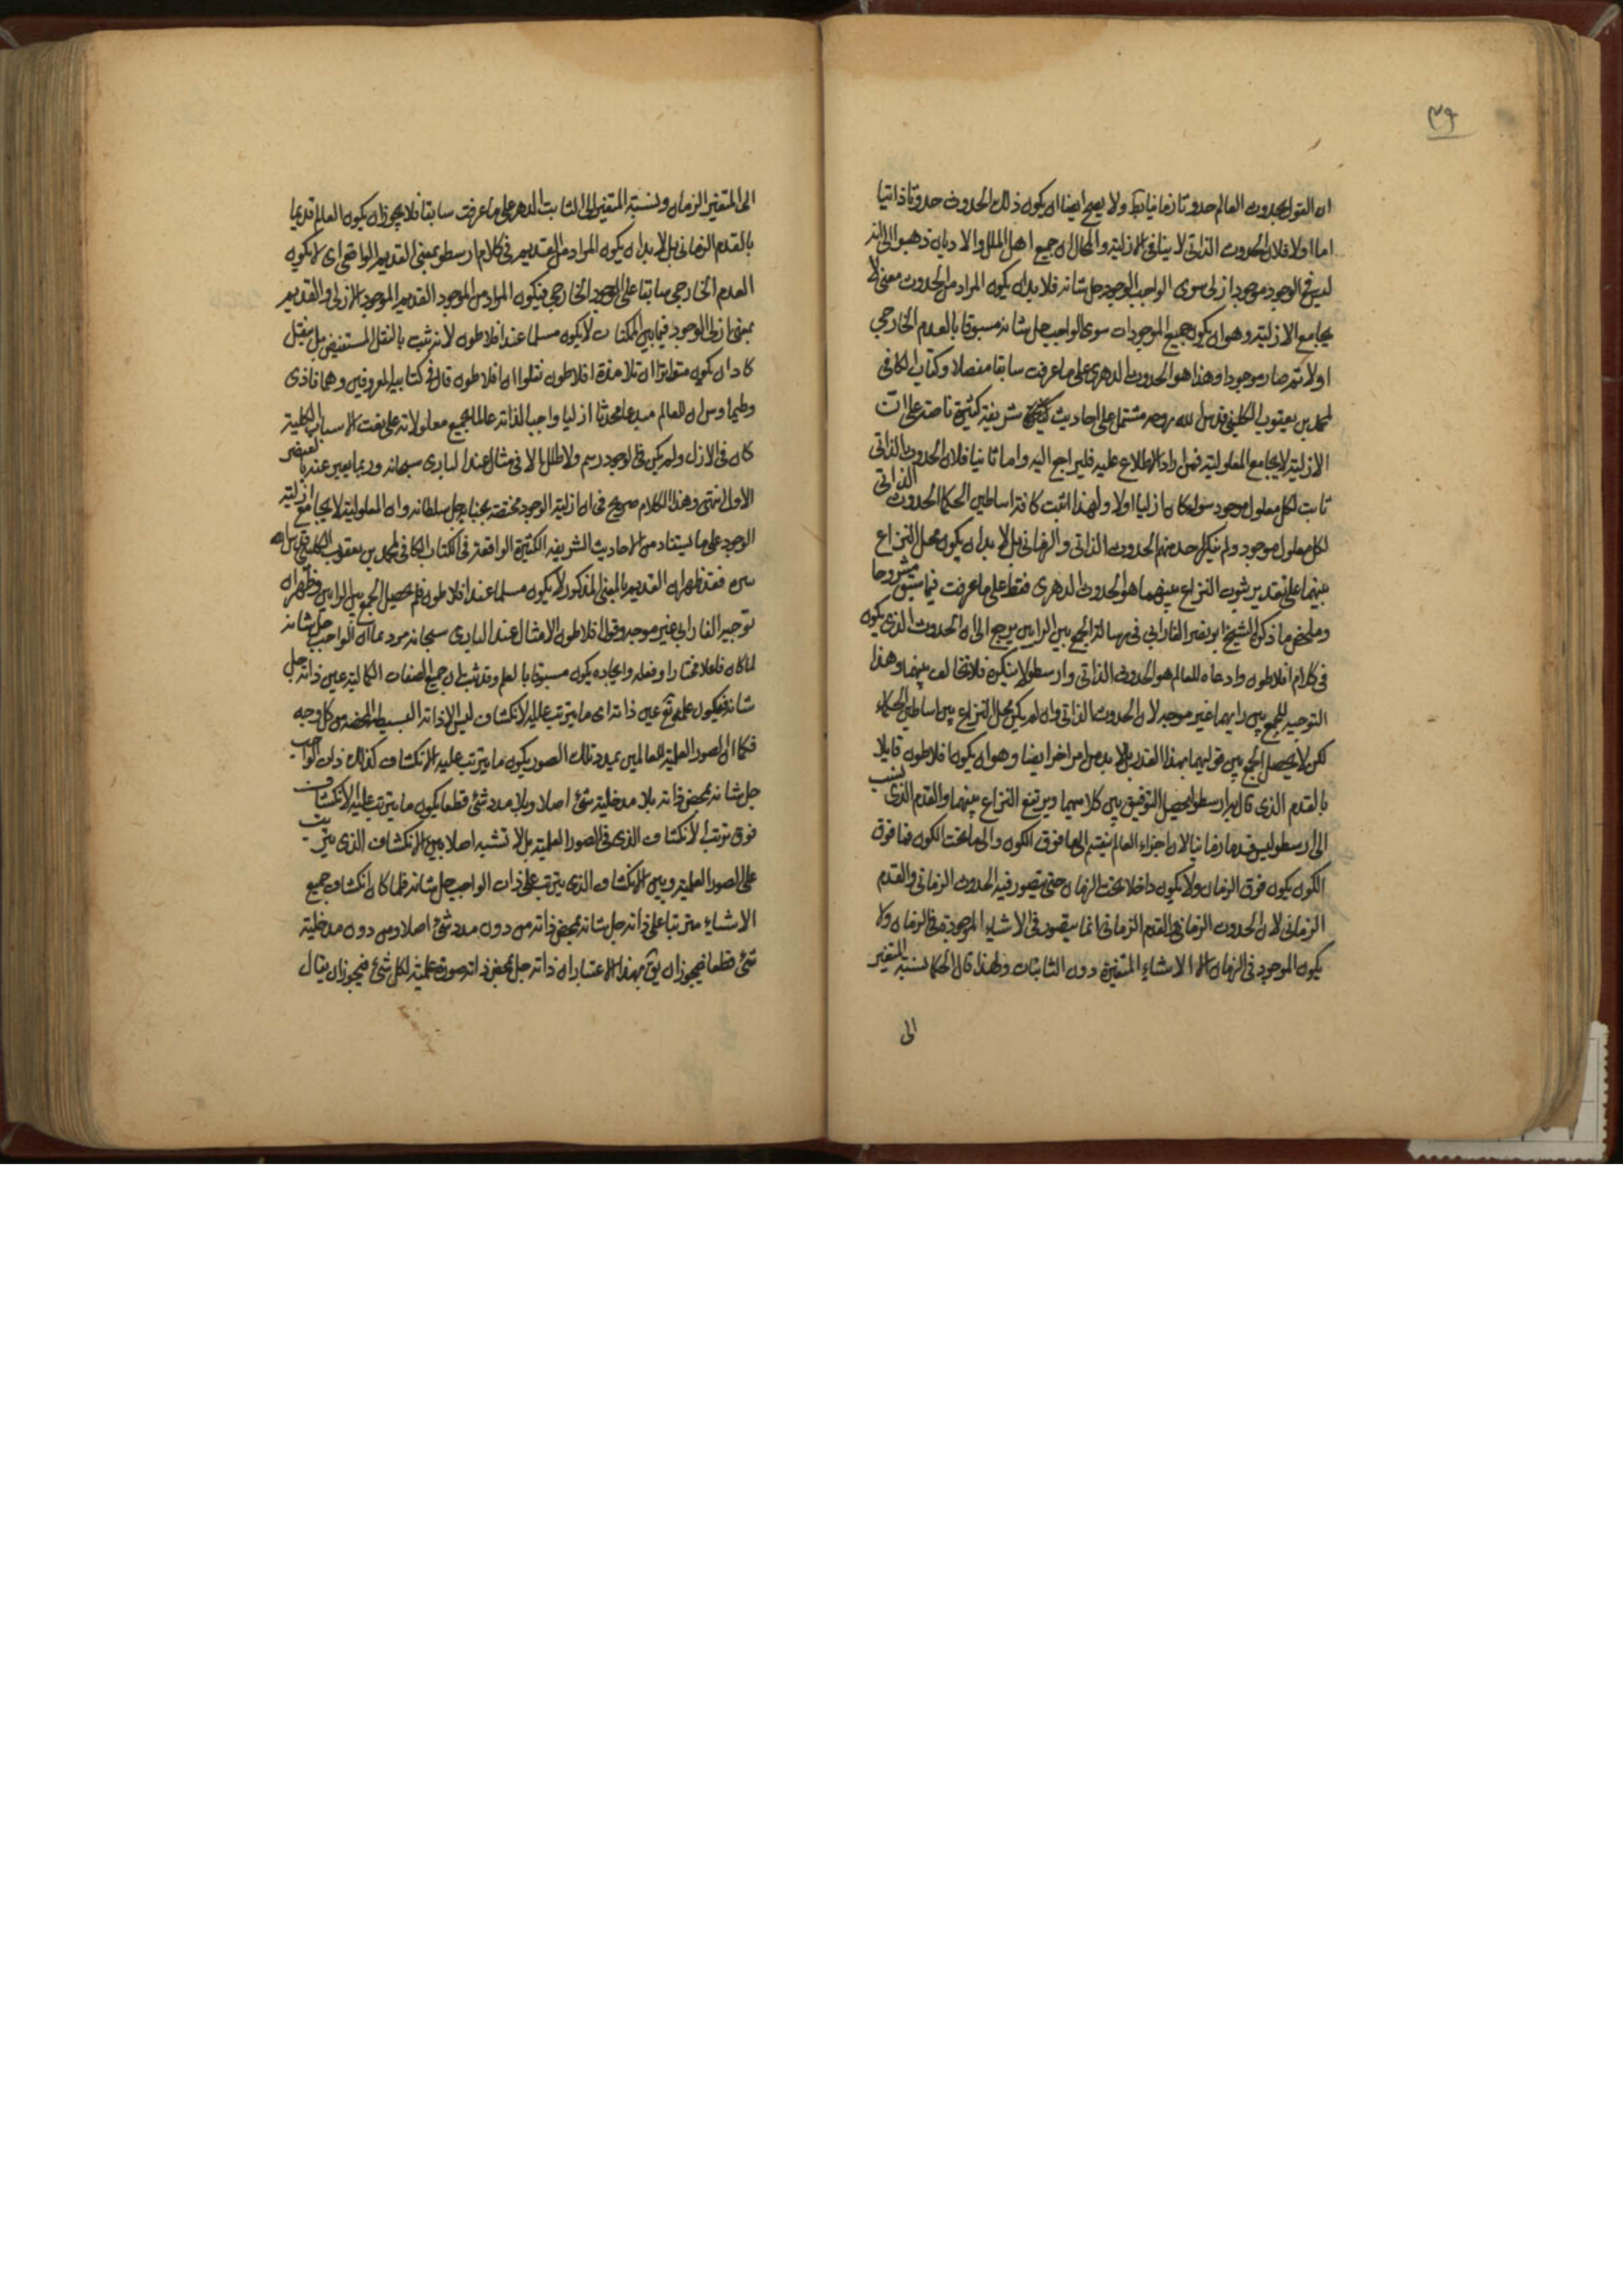 ٣٩
ان القول بحدوث العالم حدوثا زمانيا بط ولا يصح ايضا ان يكون ذلك الحدوث حدوثا ذاتيا
اما اولا فلان الحدوث الذاتى لا ينافى الازلية والحال ان جميع اهل الملل والاديان ذهبوا الى انه
ليس فى الوجود موجود ازلى سوى الواجب الوجود جل شانه فلا بد ان يكون المراد من الحدوث معنى لا
يجامع الازلية وهو ان يكون جميع الموجودات سوى الواجب جل شانه مسبوقا بالعدم الخارجي
اولا ثم صار موجودا وهذا هو الحدوث الدهرى على ما عرفت سابقا مفصلا وكتاب الكافى
لمحمد بن يعقوب الكلينى قدس الله روحه مشتمل على احاديث شريفة كثيرة ناصة على ان
الازلية لا يجامع المعلولية فمن اراد الاطلاع عليه فليراجع اليه واما ثانيا فلان الحدوث الذاتى
ثابت لكل معلول موجود سواء كان ازليا اولا ولهذا اثبت كافة اساطين الحكما الحدوث الذاتى
لكل معلول موجود ولم ينكر احد منهم الحدوث الذاتى والزمانى بل لا بد ان يكون محل النزاع
بينهما على تقدير ثبوت النزاع بينهما هو الحدوث الدهرى فقط على ما عرفت فيما سبق مشروحا
وملخص ما ذكره الشيخ ابو نصر الفارابي فى رسالة الجمع بين الرايين يرجع الى ان الحدوث الذى يكون
فى كلام افلاطون وادعاه للعالم هو الحدوث الذاتى وارسطو لا ينكره فلا تخالف بينهما وهذا
التوجيه للجمع بين رايهما غير موجه لان الحدوث الذاتى وان لم يكن محل النزاع بين اساطين الحكماء
لكن لا يحصل الجمع بين قوليهما بهذا القدر بل لا بد من امر اخر ايضا وهو ان يكون افلاطون قايلا
بالقدم الذى قال به ارسطو ليحصل التوفيق بين كلاميهما ويرتفع النزاع بينهما والقدم الذى ينسب
الى ارسطو ليس قدما زمانيا لان اجزاء العالم ينقسم الى ما فوق الكون والى ما تحت الكون فما فوق
الكون يكون فوق الزمان ولا يكون داخلا تحت الزمان حتى يتصور فيه الحدوث الزمانى والقدم
الزمانى لان الحدوث الزمانى والقدم الزمانى انما يتصور فى الاشياء الموجودة فى الزمان ولا
يكون الموجود فى الزمان الا الاشياء المتغيرة دون الثابتات ولهذا قال الحكما نسبة المتغير
الى
الى المتغير الزمان ونسبة المتغير الى الثابت الدهر على ما عرفت سابقا فلا يجوز ان يكون العالم قديما
بالقدم الزمانى بل لا بد ان يكون المراد من القديم فى كلام ارسطو بمعنى القديم الواقعى اى لا يكون
العدم الخارجي سابقا على الوجود الخارجي فيكون المراد من الموجود القديم الموجود الازلى والقديم
بمعنى ازلى الوجود فيما بين الممكنات لا يكون مسلما عند افلاطون لانه ثبت بالنقل المستفيض بل بنقل
كاد ان يكون متواترا ان تلامذة افلاطون نقلوا ان افلاطون قال فى كتابيه المعروفين وهما فاذى
وطيماوس ان للعالم مبدعا محدثا ازليا واجبا لذاته عالما بجميع معلولاته على نعت الاسباب الكلية
كان فى الازل ولم يكن فى الوجود رسم ولا طلل الا فى مثال عند البارى سبحانه وربما يعبر عنه بالعنصر
الاول انتهى وهذا الكلام صريح فى ان ازلية الوجود مختصة بجنابه جل سلطانه وان المعلولية لا يجامع ازلية
الوجود على ما يستفاد من الاحاديث الشريفة الكثيرة الواقعة فى الكتاب الكافى لمحمد بن يعقوب الكلينى قدس الله
سره فقد ظهر ان القديم بالمعنى المذكور لا يكون مسلما عند افلاطون فلم يحصل الجمع بين الرايين وظهر ان
توجيه الفارابى غير موجه وقول افلاطون الا مثال عند البارى سبحانه مرد عما ان الواجب جل شانه
لما كان فاعلا مختارا وفعله وايجاده يكون مسبوقا بالعلم وقد ثبت ان جميع الصفات الكمالية عين ذاته جل
شانه فيكون علمه تع عين ذاته اى ما يترتب عليه الانكشاف ليس الا ذاته البسيطة المحضة من كل وجه
فكما ان الصور العلمية للعالمين بمدد تلك الصور يكون ما يترتب عليه الانكشاف كذلك ذات الواجب
جل شانه بمحض ذاته بلا مدخلية شئ اصلا وبلا مدد شئ قطعا يكون ما يترتب عليه الانكشاف
فوق ترتب الانكشاف الذى فى الصور العلمية بل لا تشبيه اصلا بين الانكشاف الذى يترتب
على الصور العلمية وبين الانكشاف الذى يترتب على ذات الواجب جل شانه فلما كان انكشاف جميع
الاشياء مترتبا على ذاته جل شانه بمحض ذاته من دون مدد شئ اصلا ومن دون مدخلية
شئ قطعا فيجوز ان يق بهذا الاعتبار ان ذاته جل بمحض ذاته صورة علمية لكل شئ فيجوز ان يقال